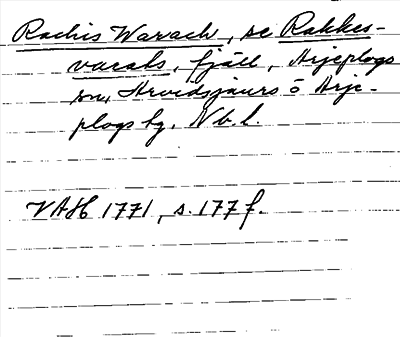 Rachis Warach, se Rakkes-
varats, fjäll, Arjeplogs
sn, Arvidsjaurs o Arje-
plogs tg, Nb. l.
VAH 1771, s. 177 f.